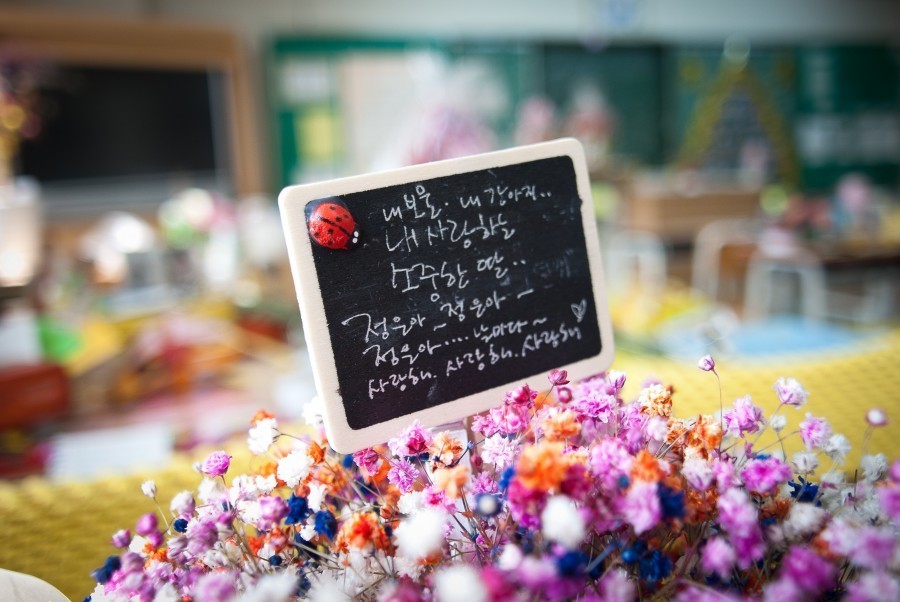 내보물. 내강아지..
내 사랑하는
소중한 딸..
정은아~ 정은아~
정은아.... 날마다~
사랑해. 사랑해. 사랑해♡